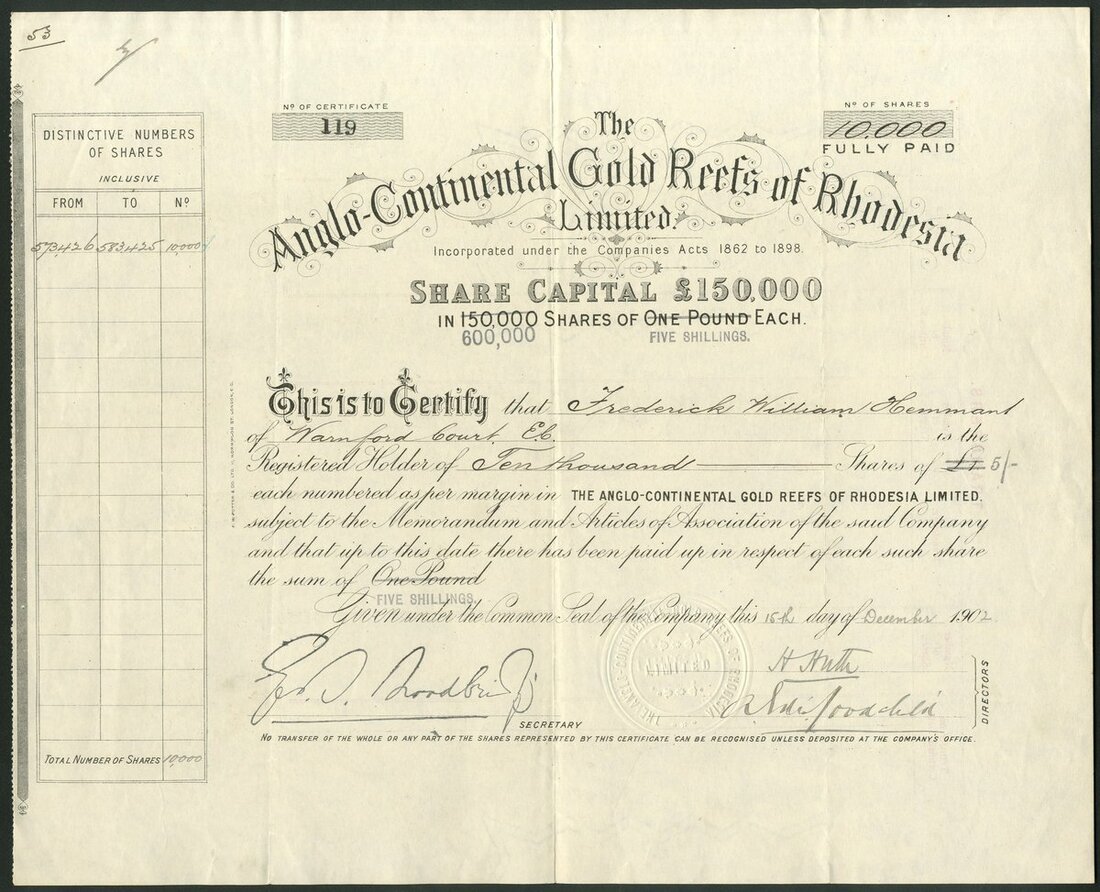 53
DISTINCTIVE NUMBERS
OF SHARES
INCLUSIVE
FROM TO Nº
573426 583425 10,000
TOTAL NUMBER OF SHARES 10,000
Nº OF CERTIFICATE
119
Nº OF SHARES
10.000
FULLY PAID
The
Anglo-Continental Gold Reefs of Rhodesia
Limited.
Incorporated under the Companies Acts 1862 to 1898.
SHARE CAPITAL £150,000
IN 150,000 SHARES OF ONE POUND EACH.
600,000 FIVE SHILLINGS.
This is to Certify that Frederick William Hemmant
of Warnford Court, E.C. is the
Registered Holder of Ten thousand Shares of £1 5/-
each numbered as per margin in THE ANGLO-CONTINENTAL GOLD REEFS OF RHODESIA LIMITED.
subject to the Memorandum and Articles of Association of the said Company
and that up to this date there has been paid up in respect of each such share
the sum of One Pound
FIVE SHILLINGS.
Given under the Common Seal of the Company this 15th day of December 1902
LIMITED
H Huth
SECRETARY
DIRECTORS
NO TRANSFER OF THE WHOLE OR ANY PART OF THE SHARES REPRESENTED BY THIS CERTIFICATE CAN BE RECOGNISED UNLESS DEPOSITED AT THE COMPANY'S OFFICE.